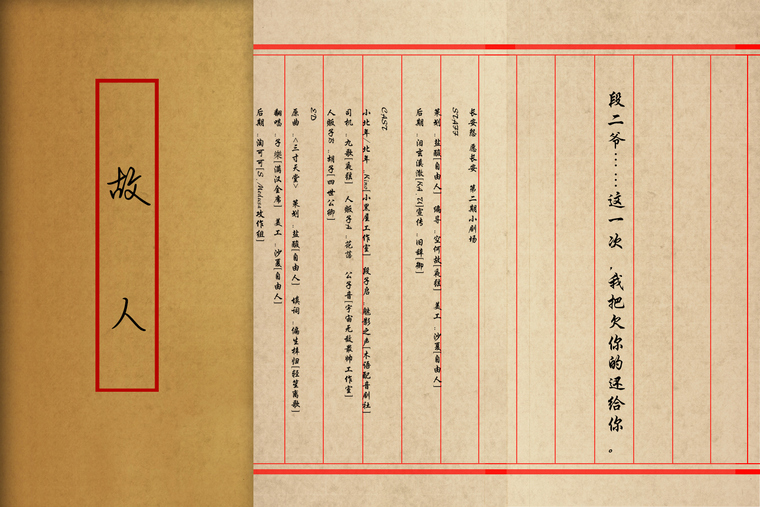 段二爷……这一次,我把欠你的还给你。
长安愁 愿长安 第二期小剧场
STAFF
策划:盐酸[自由人] 编导:空何故[表弧] 美工:沙夏[自由人]
后期:汨玄溟澈[Kd.Zl]宣传:旧辞[御]
CAST
小北年:北年.Kino[小黑屋工作室] 段子启:魅影之声[木语配音剧社]
司机:九歌[表弧] 人贩子A:花落 公子音[宇宙无敌最帅工作室]
人贩子B:胡子[四世公卿]
ED
原曲:<三寸天堂> 策划:盐酸[自由人] 填词:偏生梓归[轻笙离歌]
翻唱:子樂[满汉全席] 美工:沙夏[自由人]
后期:淘可可[S.Medusa攻作组]
故人